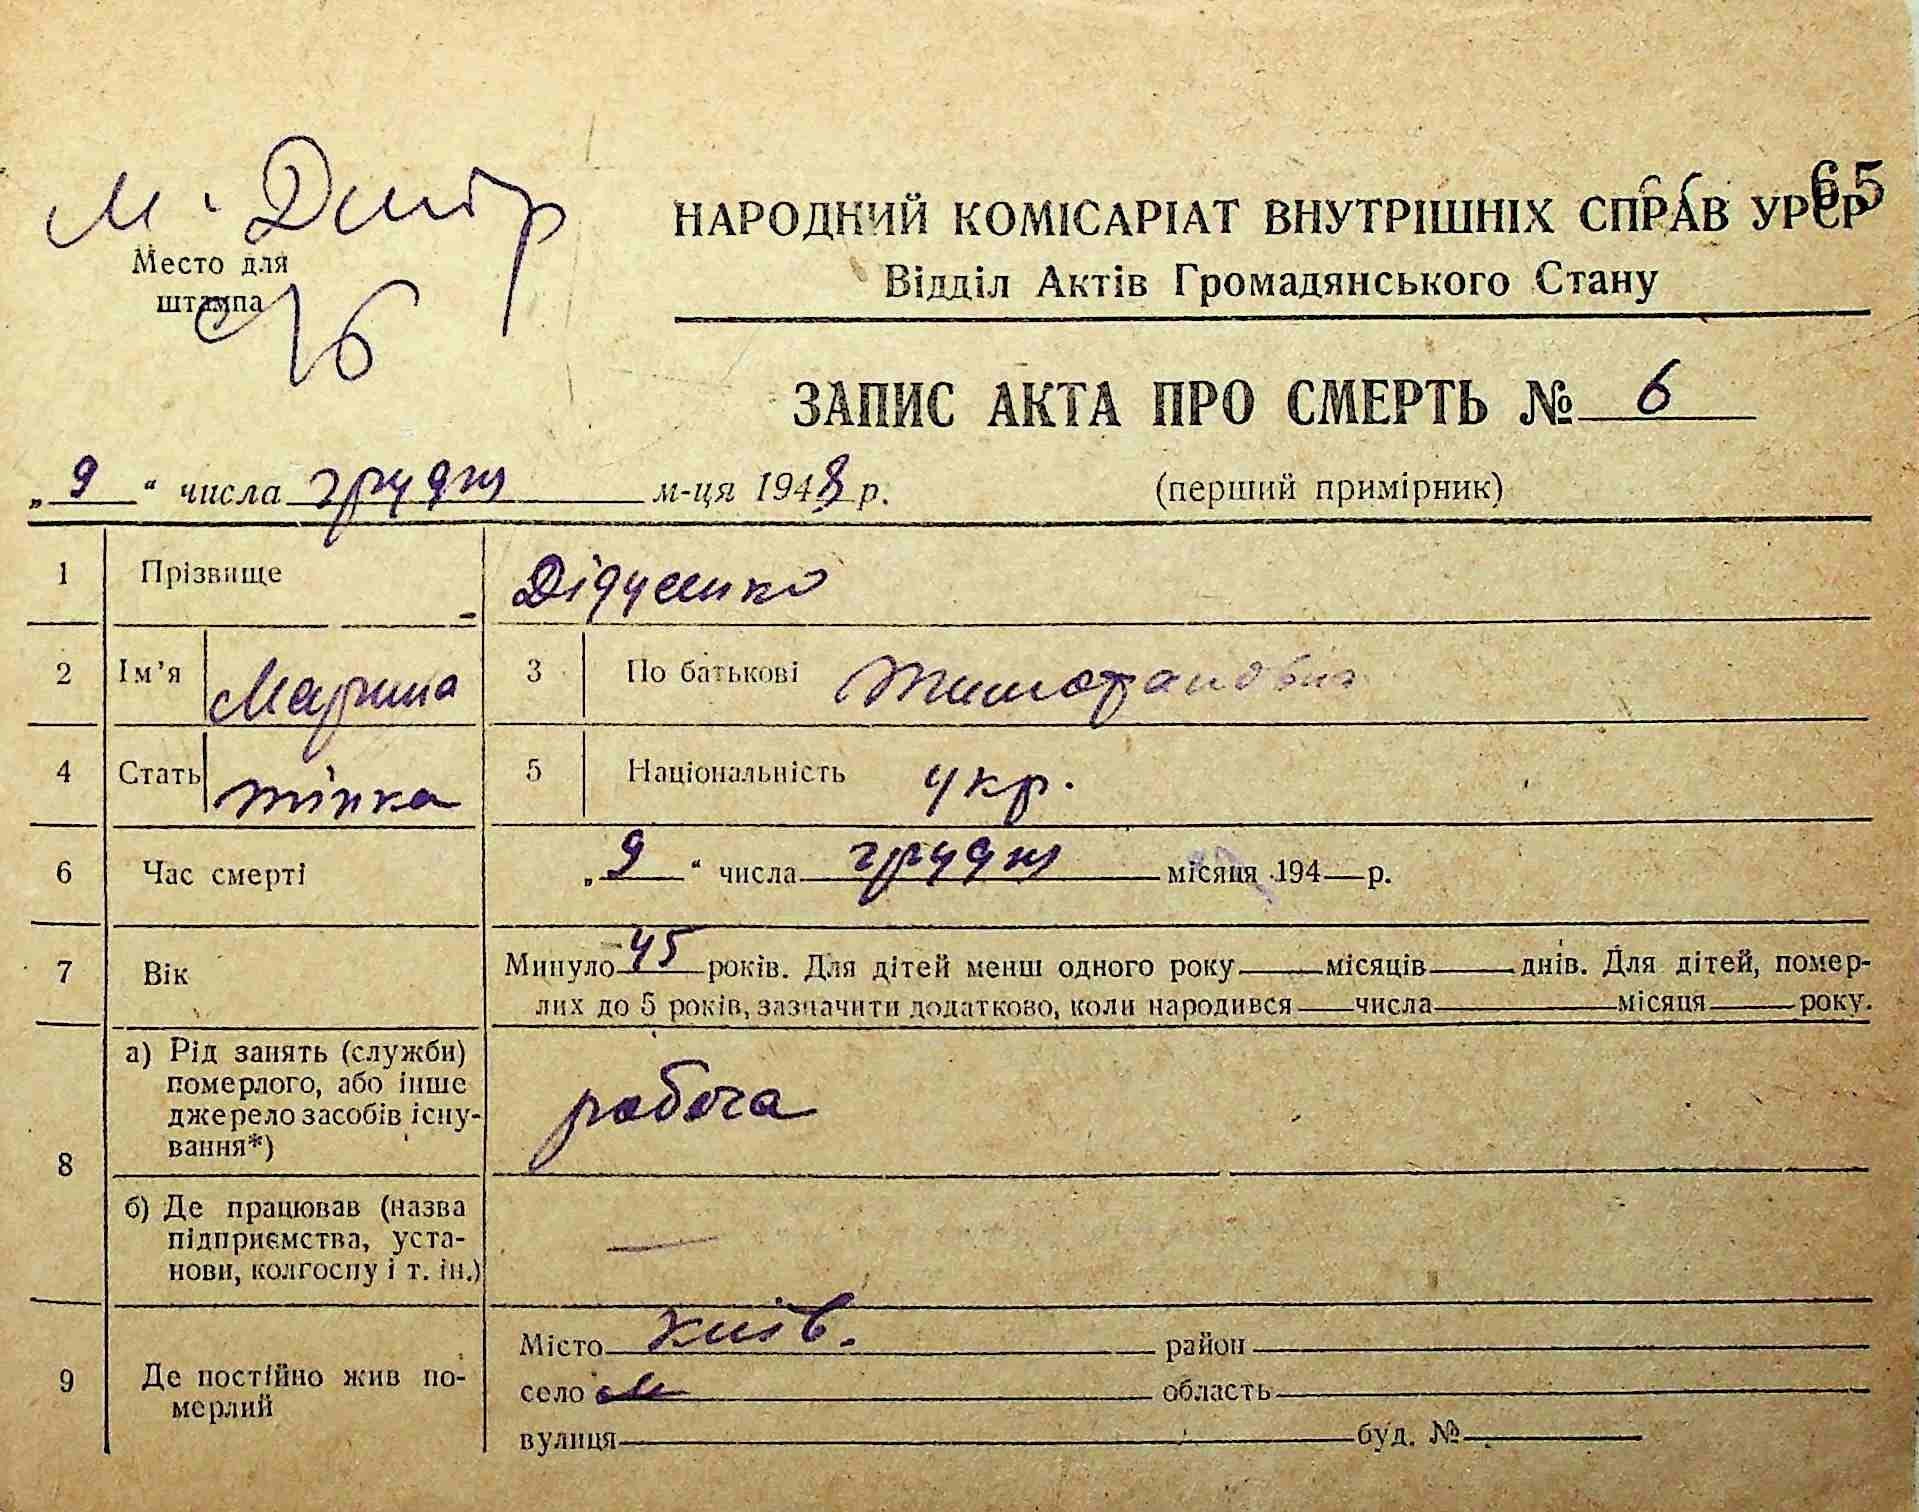 65
м. Дніпр
НАРОДНИЙ КОМІСАРІАТ ВНУТРІШНІХ СПРАВ УРСР
Место для
штампа
Відділ Актів Громадянського Стану
ЗАПИС АКТА ПРО СМЕРТЬ № 6
„9“ числа грудня м-ця 1948 р. (перший примірник)
1 Прізвище Дідусенко
2 Ім’я Марина 3 По батькові
4 Стать жінка 5 Національність укр.
6 Час смерті „9“ числа грудня місяця 194—р.
7 Вік Минуло 45 років. Для дітей менш одного року—місяців—днів. Для дітей, помер-
лих до 5 років, зазначити додатково, коли народився—числа—місяця—року.
8 а) Рід занять (служби)
померлого, або інше
джерело засобів існу-
вання*)
робоча
б) Де працював (назва
підприємства, уста-
нови, колгоспу і т. ін.)
—
9 Де постійно жив по-
мерлий
Місто Київ. район
село область
вулиця буд. №